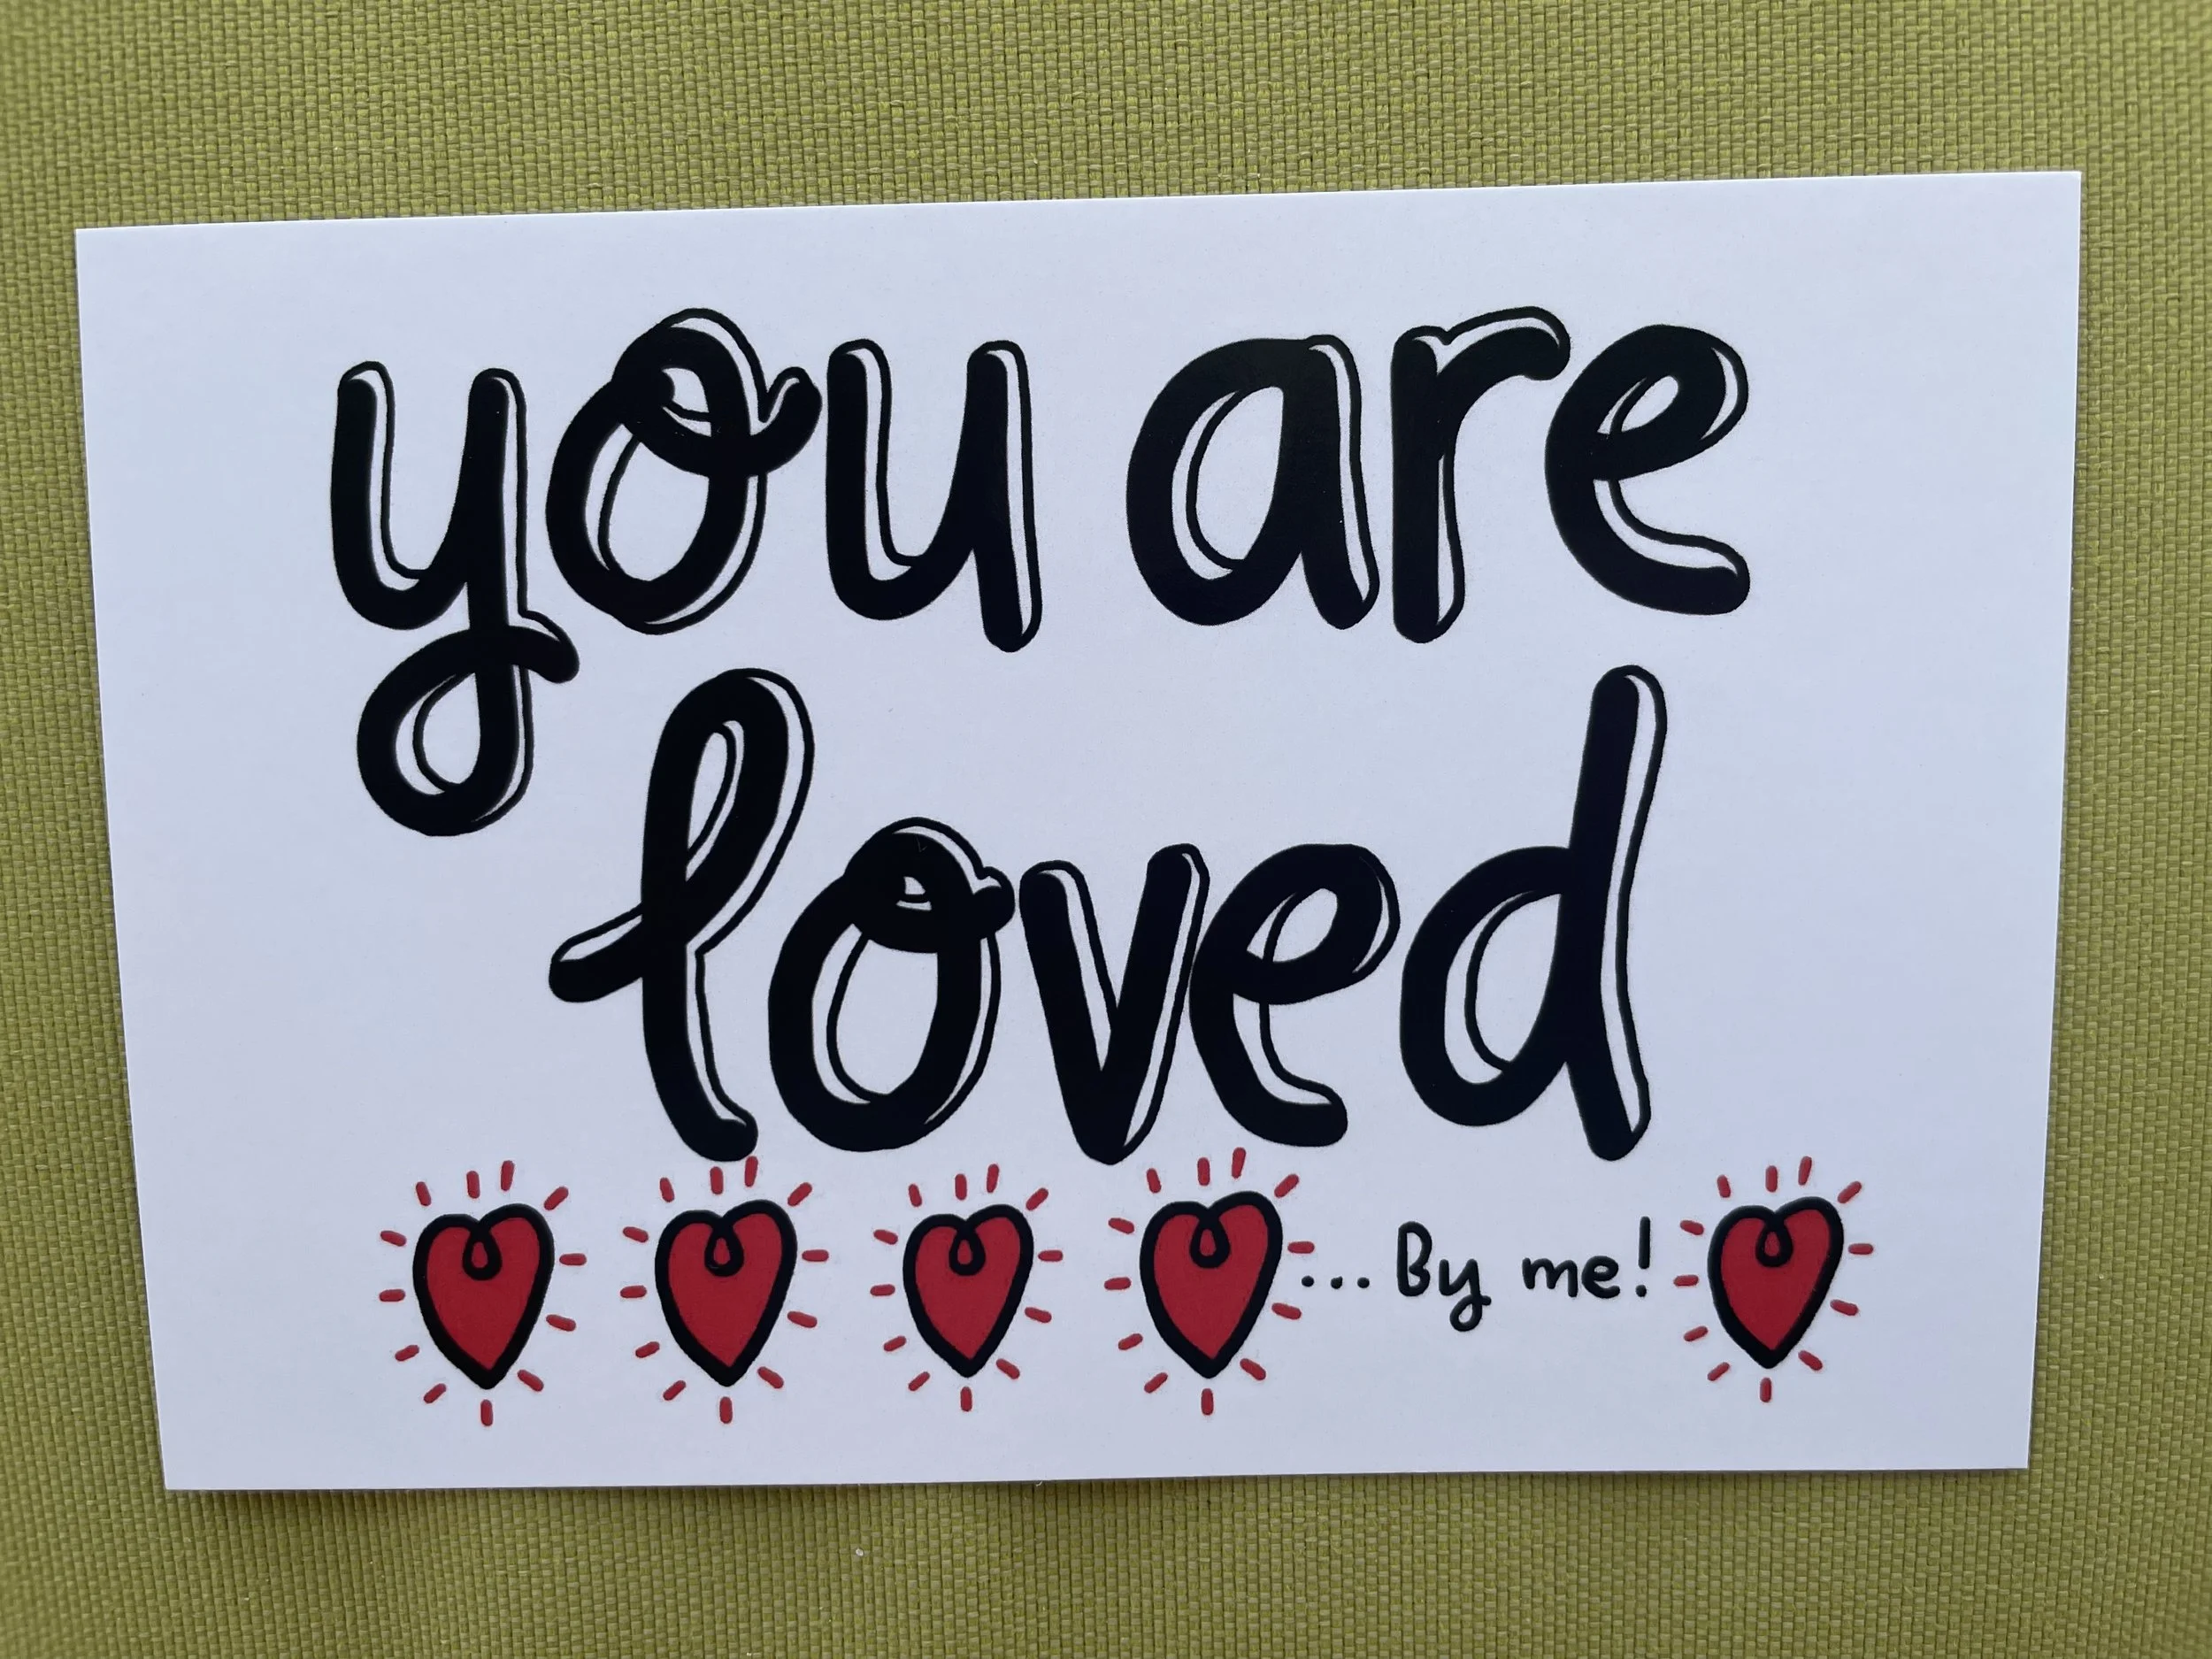 you are
loved
... By me!